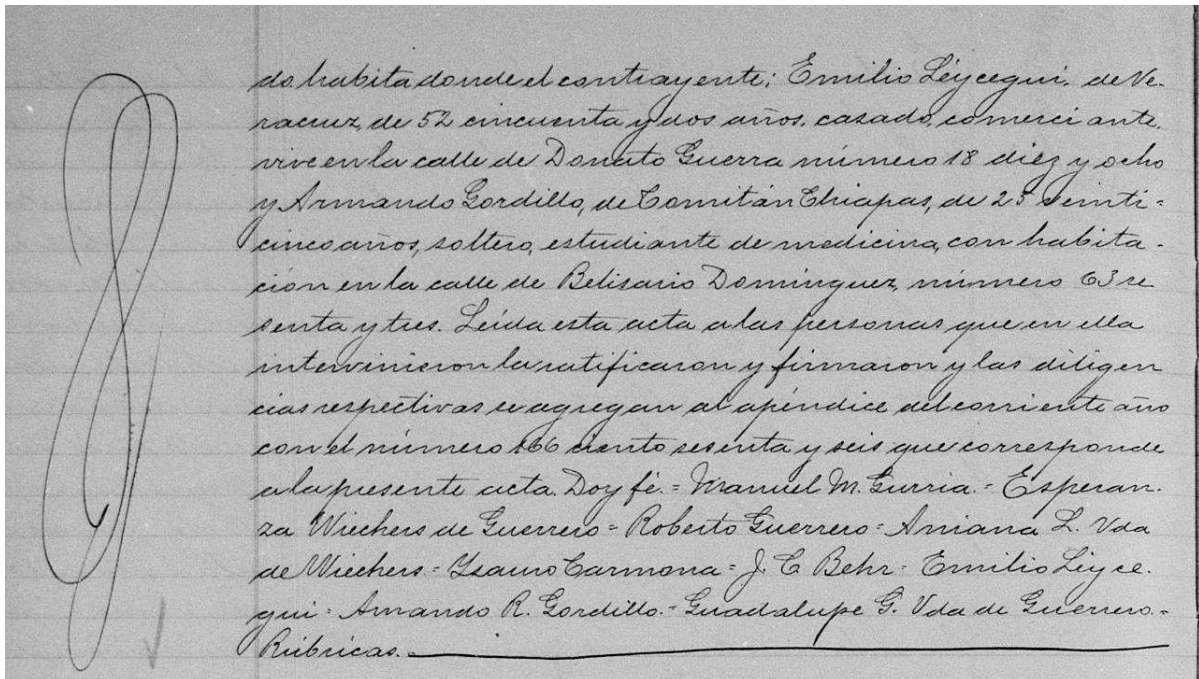 do habita donde el contrayente; Emilio Léycegui, de Ve-
racruz, de 52 cincuenta y dos años, casado, comerciante,
vive en la calle de Donato Guerra número 18 diez y ocho
y Armando Gordillo, de Comitán Chiapas, de 25 veinti-
cinco años, soltero, estudiante de medicina, con habita-
ción en la calle de Belisario Domínguez, número 63 se
senta y tres. Leída esta acta a las personas que en ella
intervinieron la ratificaron y firmaron y las diligen
cias respectivas se agregan al apéndice del corriente año
con el número 166 ciento sesenta y seis que corresponde
a la presente acta. Doy fé.= Manuel M. Gurria.= Esperan-
za Wiechers de Guerrero= Roberto Guerrero= Aniana L. Vda
de Wiechers.= Ysauro Carmona= J. C Behr= Emilio Léyce-
gui= Armando R. Gordillo.= Guadalupe G. Vda de Guerrero.=
Rúbricas.